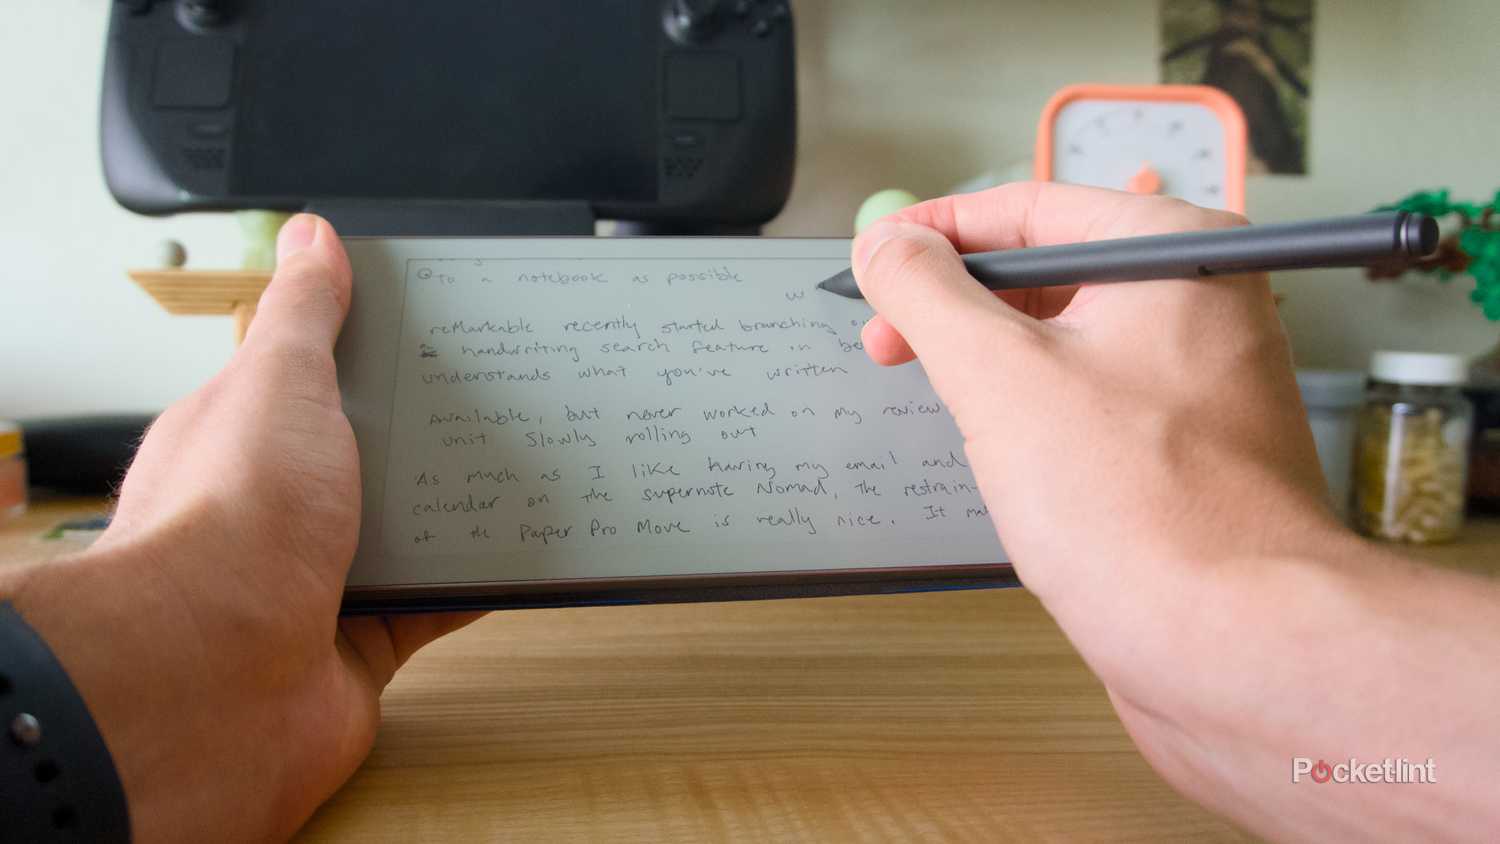 To a notebook as possible
w
reMarkable recently started branching
handwriting search feature in be
understands what you've written
Available, but never worked on my review
unit slowly rolling out
As much as I like having my email and
calendar on the supernote Nomad, the restrain-
of the Paper Pro Move is really nice. It ma
Pocketlint